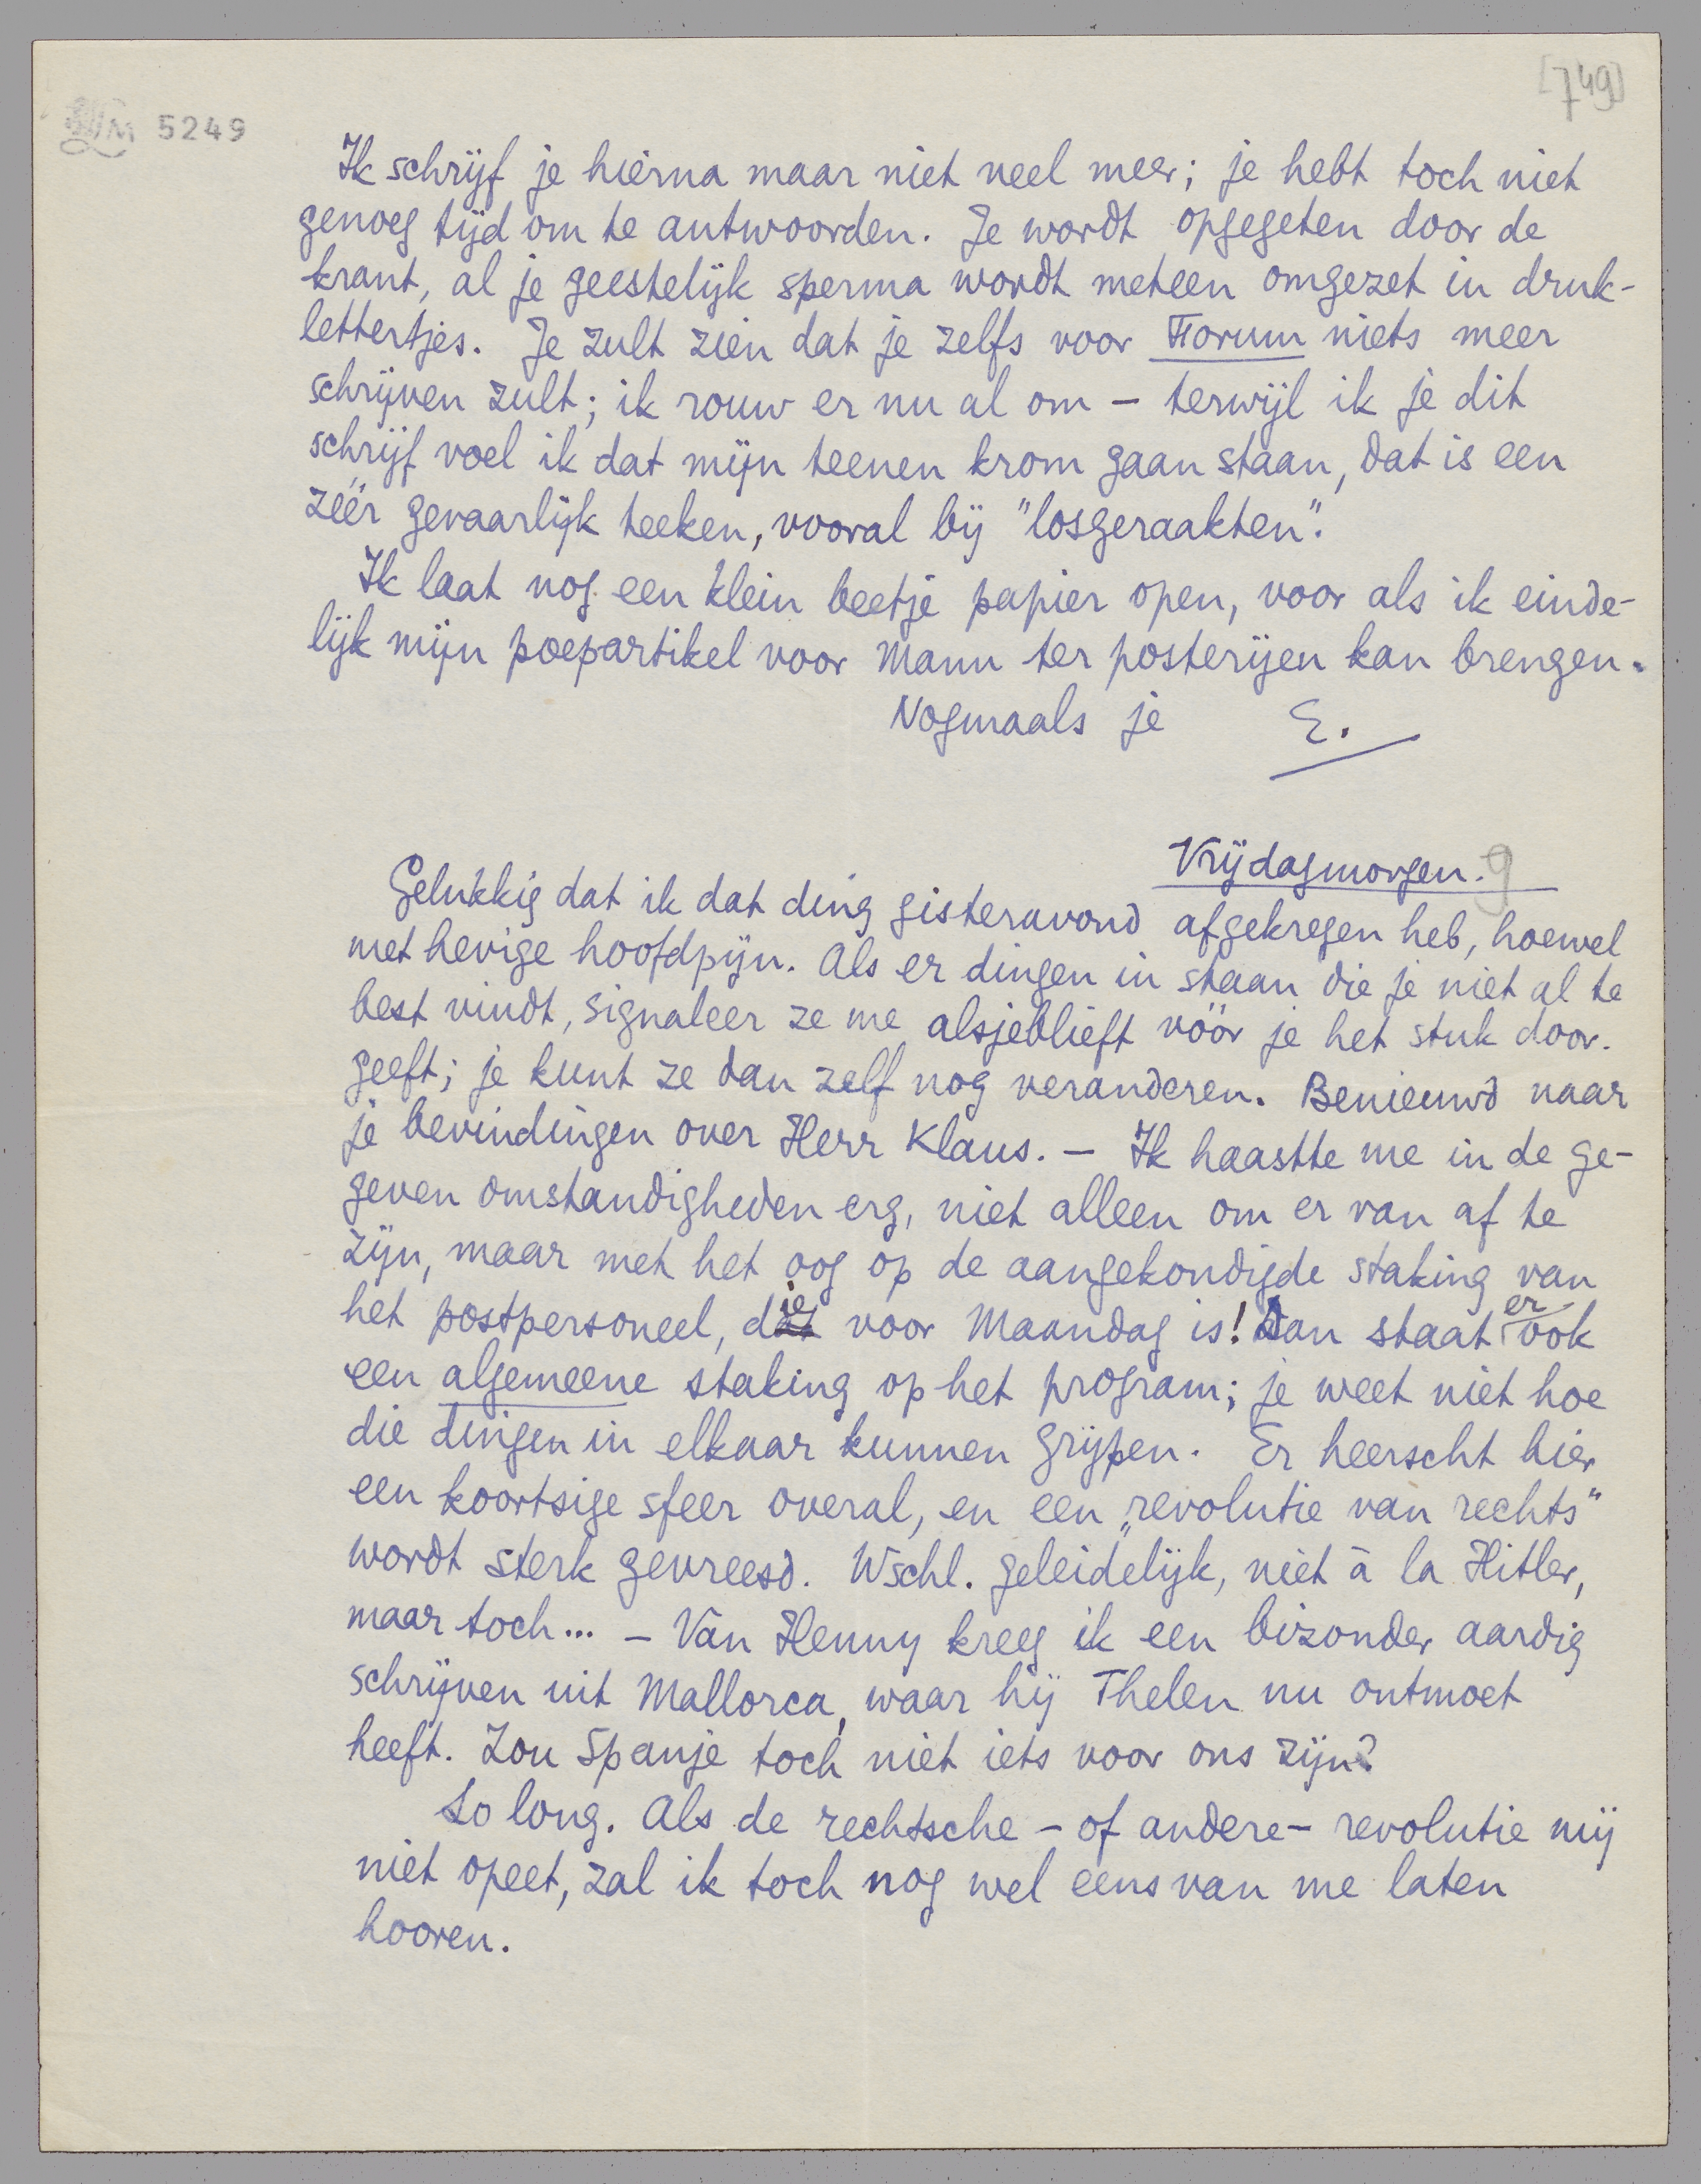 [749]
LM 5249
Ik schrijf je hierna maar niet veel meer; je hebt toch niet
genoeg tijd om te antwoorden. Je wordt opgegeten door de
krant, al je geestelijk sperma wordt meteen omgezet in druk-
lettertjes. Je zult zien dat je zelfs voor Forum niets meer
schrijven zult; ik rouw er nu al om – terwijl ik je dit
schrijf voel ik dat mijn teenen krom gaan staan, dat is een
zéér gevaarlijk teeken, vooral bij "losgeraakten".
Ik laat nog een klein beetje papier open, voor als ik einde-
lijk mijn poepartikel voor Mann ter posterijen kan brengen.
Nogmaals je E.
Vrijdagmorgen. 9
Gelukkig dat ik dat ding gisteravond afgekregen heb, hoewel
met hevige hoofdpijn. Als er dingen in staan die je niet al te
best vindt, signaleer ze me alsjeblieft vóór je het stuk door-
geeft; je kunt ze dan zelf nog veranderen. Benieuwd naar
je bevindingen over Herr Klaus. – Ik haastte me in de ge-
geven omstandigheden erg, niet alleen om er van af te
zijn, maar met het oog op de aangekondigde staking van
het postpersoneel, die voor Maandag is! Dan staat er ook
een algemeene staking op het program; je weet niet hoe
die dingen in elkaar kunnen grijpen. Er heerscht hier
een koortsige sfeer overal, en een „revolutie van rechts"
wordt sterk gevreesd. Wschl. geleidelijk, niet à la Hitler,
maar toch... – Van Henny kreeg ik een bizonder aardig
schrijven uit Mallorca, waar hij Thelen nu ontmoet
heeft. Zou Spanje toch niet iets voor ons zijn?
So long. Als de rechtsche – of andere – revolutie mij
niet opeet, zal ik toch nog wel eens van me laten
hooren.